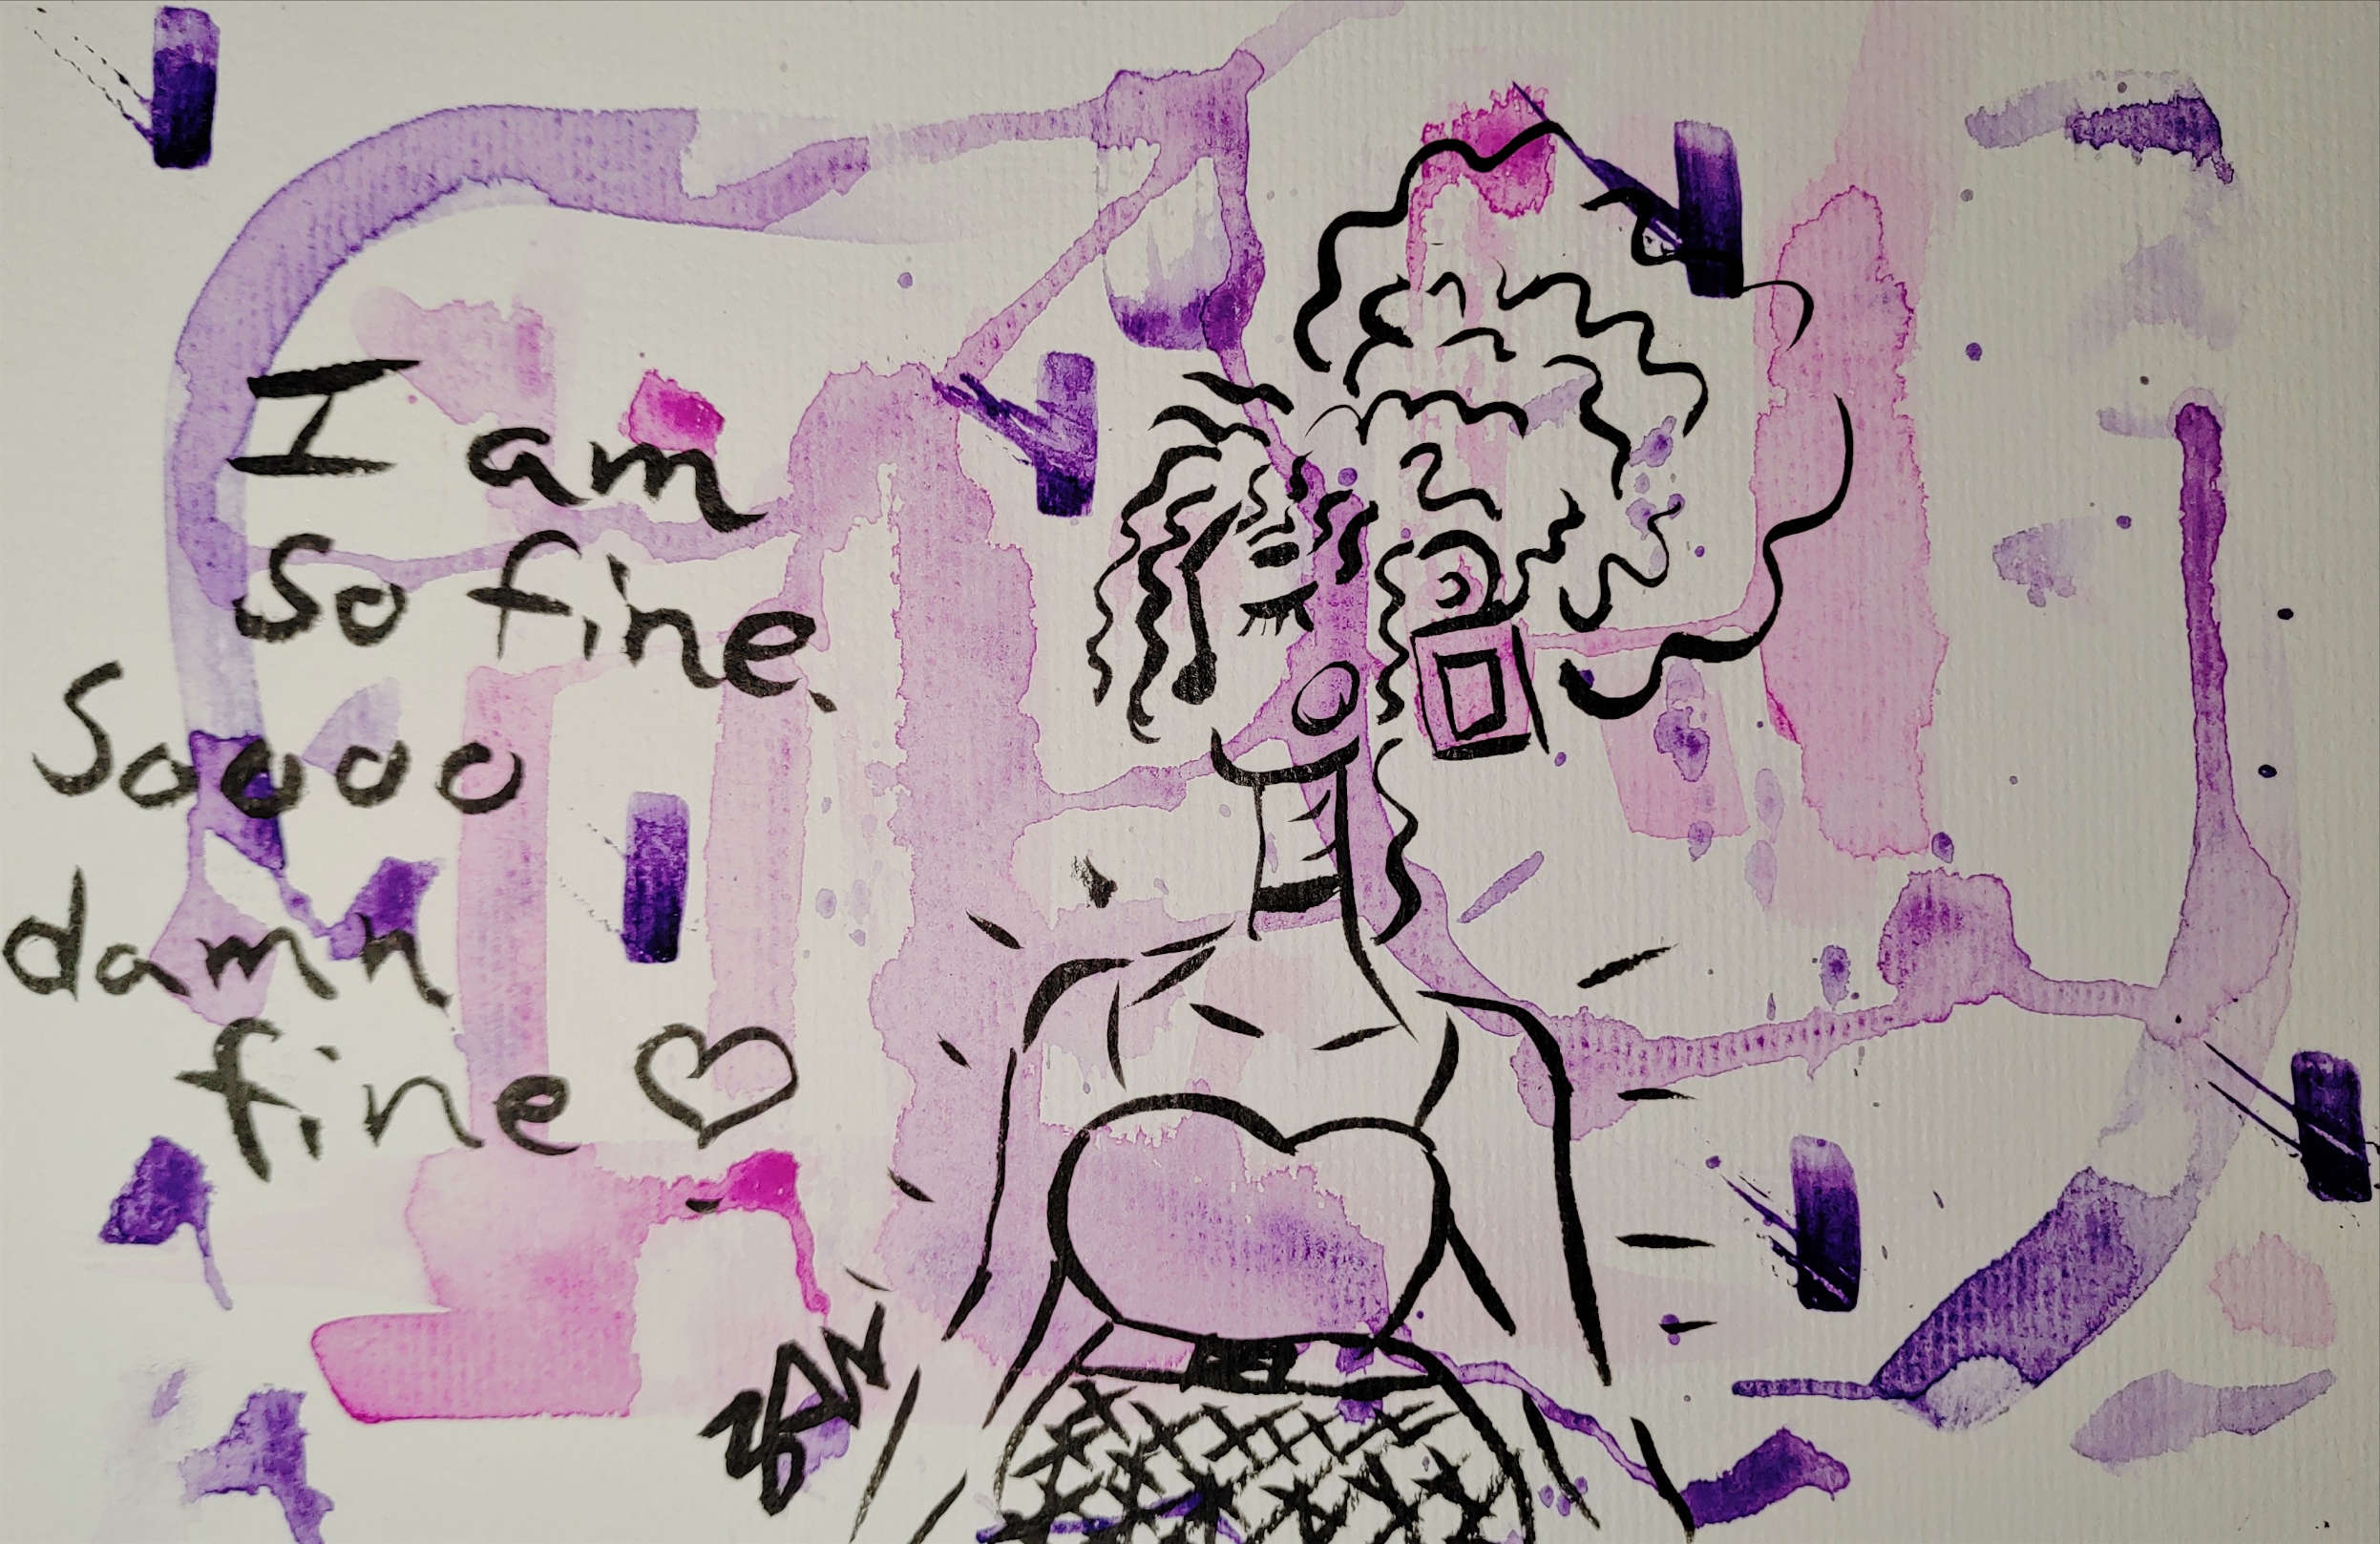 I am
so fine.
Soooo
damn
fine